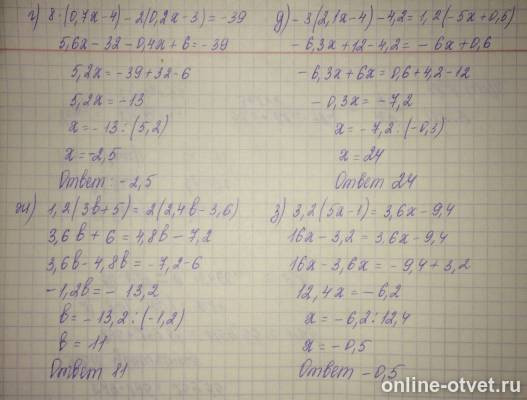 г) 8·(0,7x-4)-2(0,2x-3)=-39
5,6x-32-0,4x+6=-39
5,2x=-39+32-6
5,2x=-13
x=-13:(5,2)
x=-2,5
Ответ: -2,5
д) -3(2,1x-4)-4,2=1,2(-5x+0,5)
-6,3x+12-4,2=-6x+0,6
-6,3x+6x=0,6+4,2-12
-0,3x=-7,2
x=-7,2:(-0,3)
x=24
Ответ 24
ж) 1,2(3в+5)=2(2,4в-3,6)
3,6в+6=4,8в-7,2
3,6в-4,8в=-7,2-6
-1,2в=-13,2
в=-13,2:(-1,2)
в=11
Ответ 11
з) 3,2(5x-1)=3,6x-9,4
16x-3,2=3,6x-9,4
16x-3,6x=-9,4+3,2
12,4x=-6,2
x=-6,2:12,4
x=-0,5
Ответ -0,5
online-otvet.ru